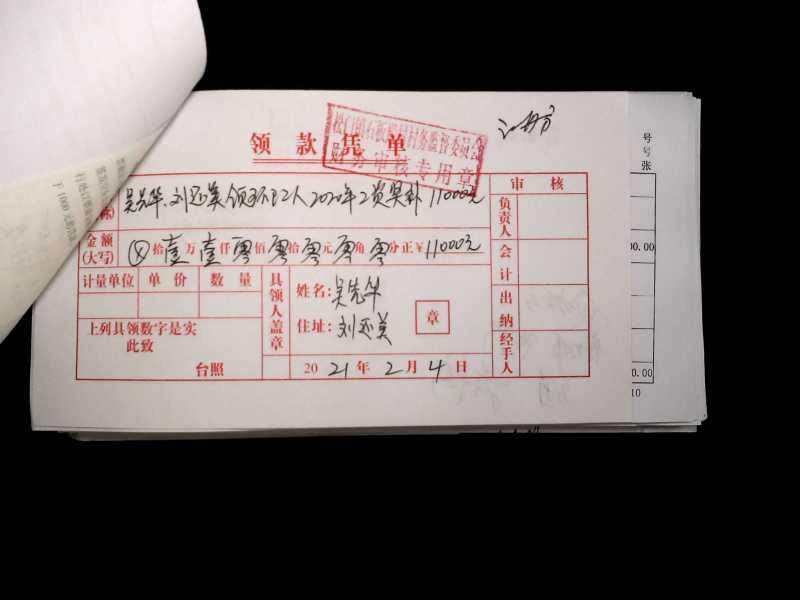 领款凭单
松口镇石板桥村村务监督委员会
财务审核专用章
吴先华、刘还美领环卫2人2020年工资奖补11000元
称)
审核
金额(大写) ⊗拾壹万壹仟零佰零拾零元零角零分正￥11000元
负责人
会计
出纳
经手人
计量单位 单价 数量
具领人盖章
姓名:吴先华
住址:刘还美
章
上列具领数字是实
此致
台照
2021年2月4日
号
号
张
00.00
0.00
10
于1000元的罚款